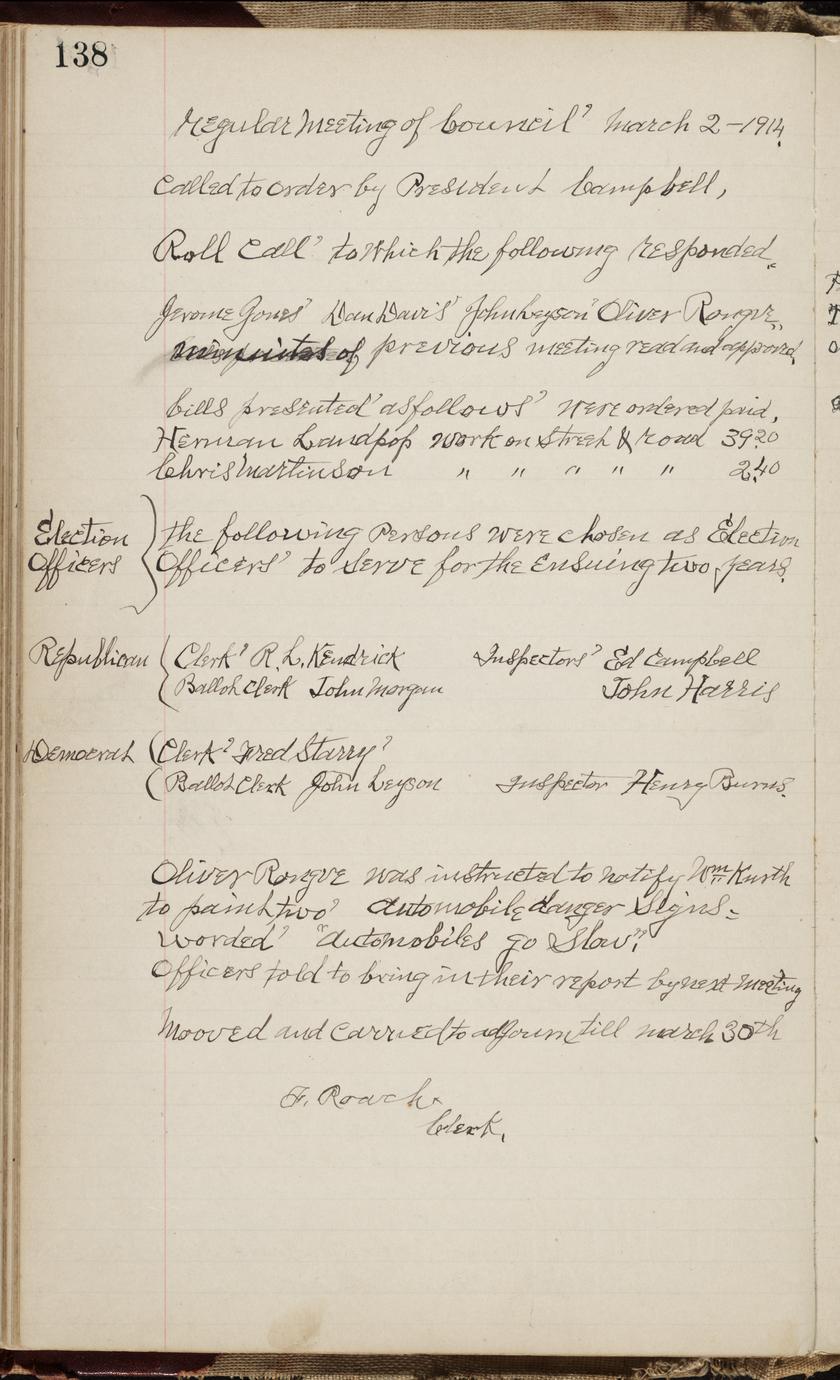 138
Regular Meeting of Council' March 2 - 1914.
Called to order by President Campbell,
Roll Call' to Which the following responded.
Jerome Jones' Dan Davis' John Leyson' Oliver Rongve.
minuites of previous meeting read and approved,
bills presented' as follows' were ordered paid,
Herman Landpop work on Street & road 39.20
Chris Martinson " " " " " 2.40
Election } the following Persons were chosen as Election
Officers } Officers' to Serve for the Ensuing two years.
Republican { Clerk' R. L. Kendrick Inspectors' Ed Campbell
{ Ballot Clerk John Morgan John Harris
Democrat ( Clerk' Fred Starry'
( Ballot Clerk John Leyson Inspector Henry Burns.
Oliver Rongve was instructed to notify Wm Kurth
to paint two' automobile danger Signs=
Worded' "automobiles go Slow",
Officers told to bring in their report by next meeting
Mooved and Carried to adjourn till march 30th
F. Roach.
Clerk,